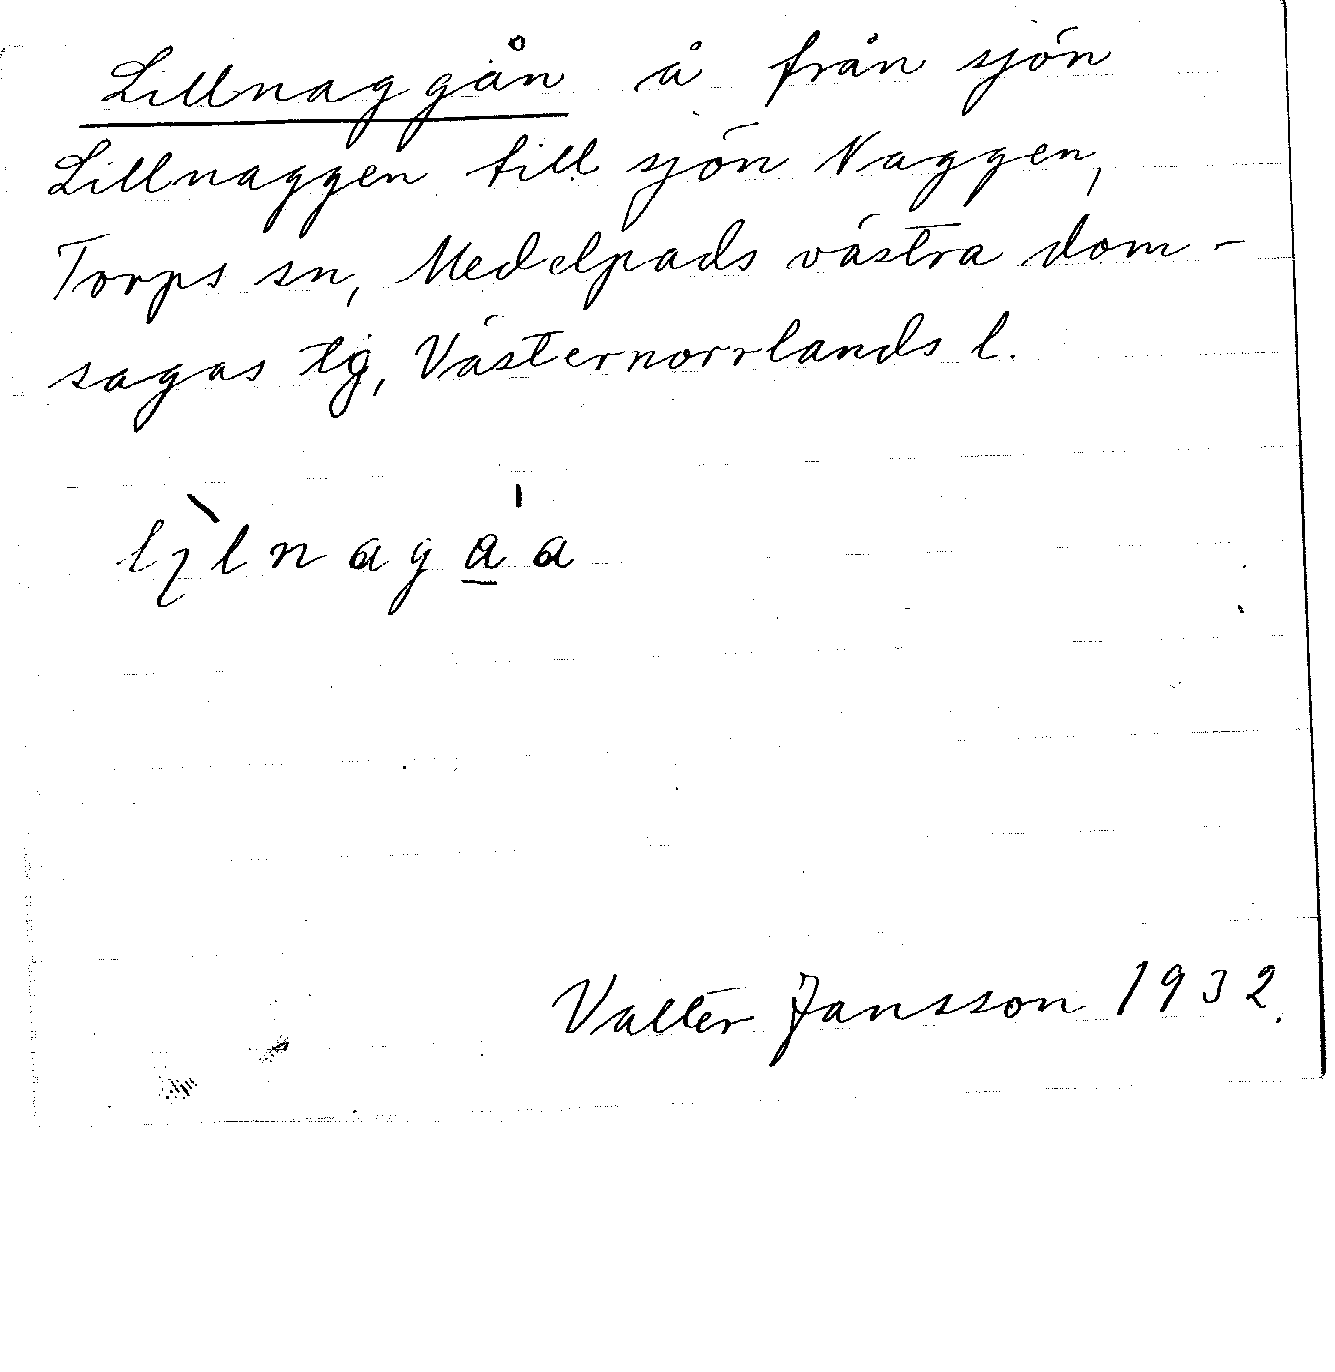 Lillnaggån å från sjön
Lillnaggen till sjön Naggen,
Torps sn, Medelpads västra dom-
sagas tg, Västernorrlands l.
Valter Jansson 1932.